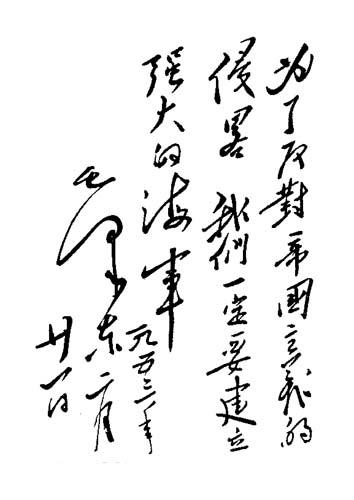 为了反對帝國主義的
侵略 我們一定要建立
强大的海軍
毛澤东
一九五三年
二月
廿一日